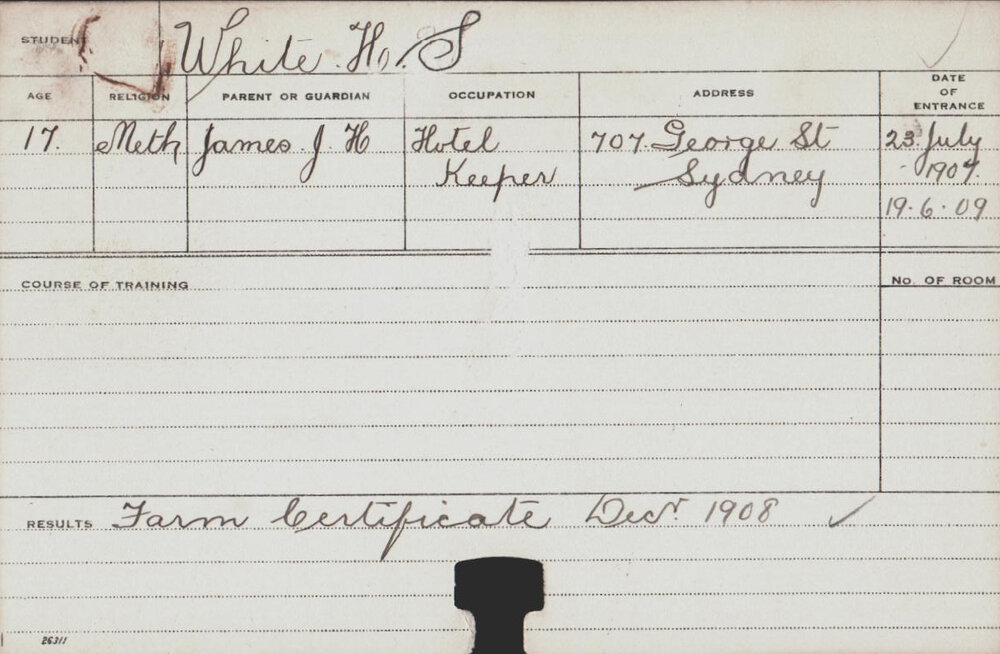 STUDENT White. H. S
AGE RELIGION PARENT OR GUARDIAN OCCUPATION ADDRESS DATE OF ENTRANCE
17. Meth James. J. H Hotel Keeper 707. George St Sydney 23. July 1907.
19.6.09
COURSE OF TRAINING No. OF ROOM
RESULTS Farm Certificate Decr. 1908
26311